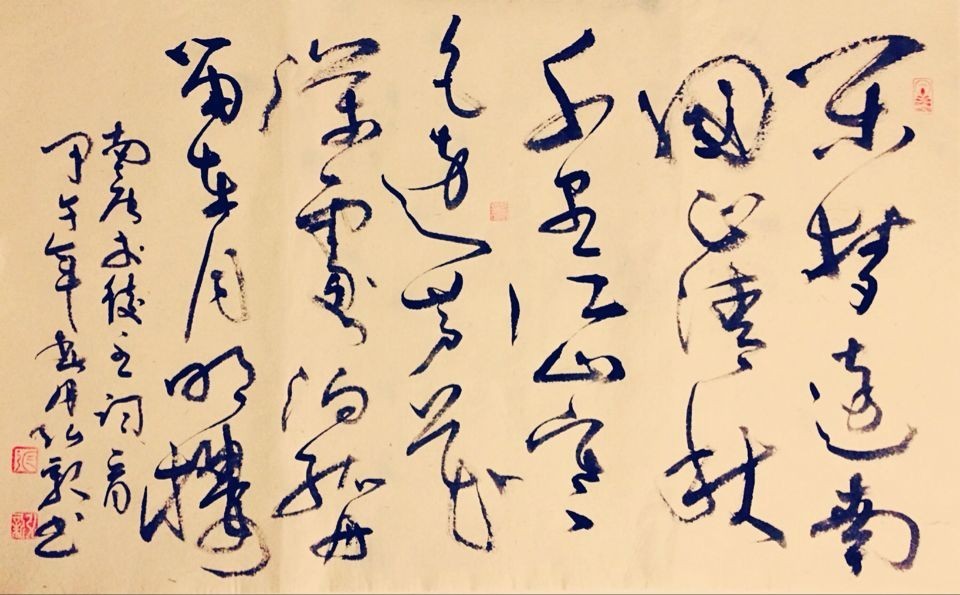 閒夢遠南
國正清秋
千里江山寒
色遠蘆花
深處泊孤舟
笛在月明樓
南唐李後主詞一首
甲午年春月書